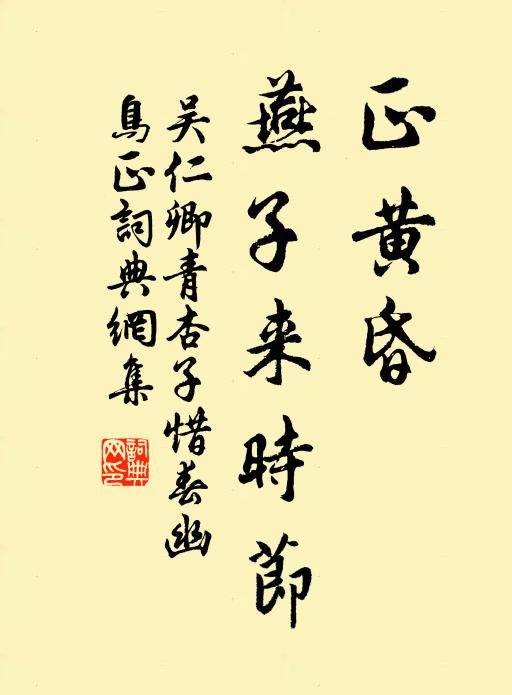 正黄昏
燕子来時節
吴仁卿青杏子惜春幽
鳥正詞典網集
詞典網印